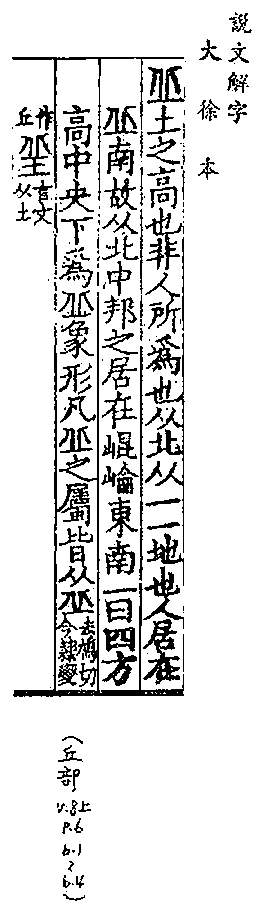 說文解字
大徐本
丠土之高也非人所爲也从北从一一地也人居在
丠南故从北中邦之居在崐崘東南一曰四方
高中央下爲丠象形凡丠之屬皆从丠去鳩切今隸變
作丘𡊣古文从土
(丘部 v.8上 p.6 b.1~b.4)